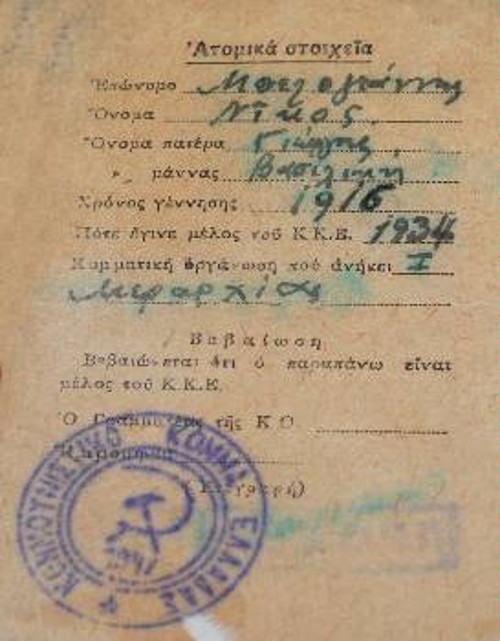 Ἀτομικά στοιχεῖα
Ἐπώνυμο Μπελογιάννης
Ὄνομα Νῖκος
Ὄνομα πατέρα Γιώργης
» μάννας Βασιλική
Χρόνος γέννησης 1916
Πότε ἔγινε μέλος τοῦ Κ.Κ.Ε. 1934
Κομματική ὀργάνωση πού ἀνήκει I
Μεραρχίας
Βεβαίωση
Βεβαιώνεται ὅτι ὁ παραπάνω εἶναι
μέλος τοῦ Κ.Κ.Ε.
Ὁ Γραμματέας τῆς Κ.Ο.
Ἡμερομηνία
(Ὑπογραφή)
ΚΟΜΜΟΥΝΙΣΤΙΚΟ ΚΟΜΜΑ ΕΛΛΑΔΑΣ